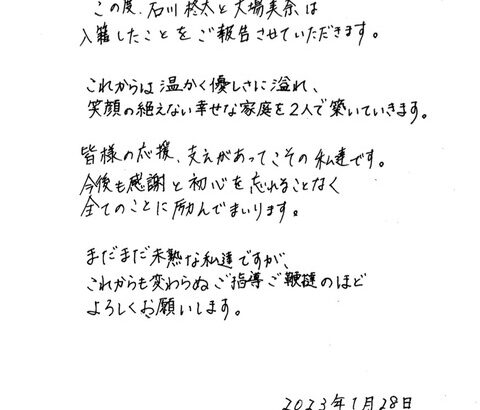 この度、石川柊太と大場美奈は
入籍したことをご報告させていただきます。
これからは温かく優しさに溢れ、
笑顔の絶えない幸せな家庭を2人で築いていきます。
皆様の応援、支えがあってこその私達です。
今後も感謝と初心を忘れることなく
全てのことに励んでまいります。
まだまだ未熟な私達ですが、
これからも変わらぬご指導ご鞭撻のほど
よろしくお願いします。
2023年1月28日